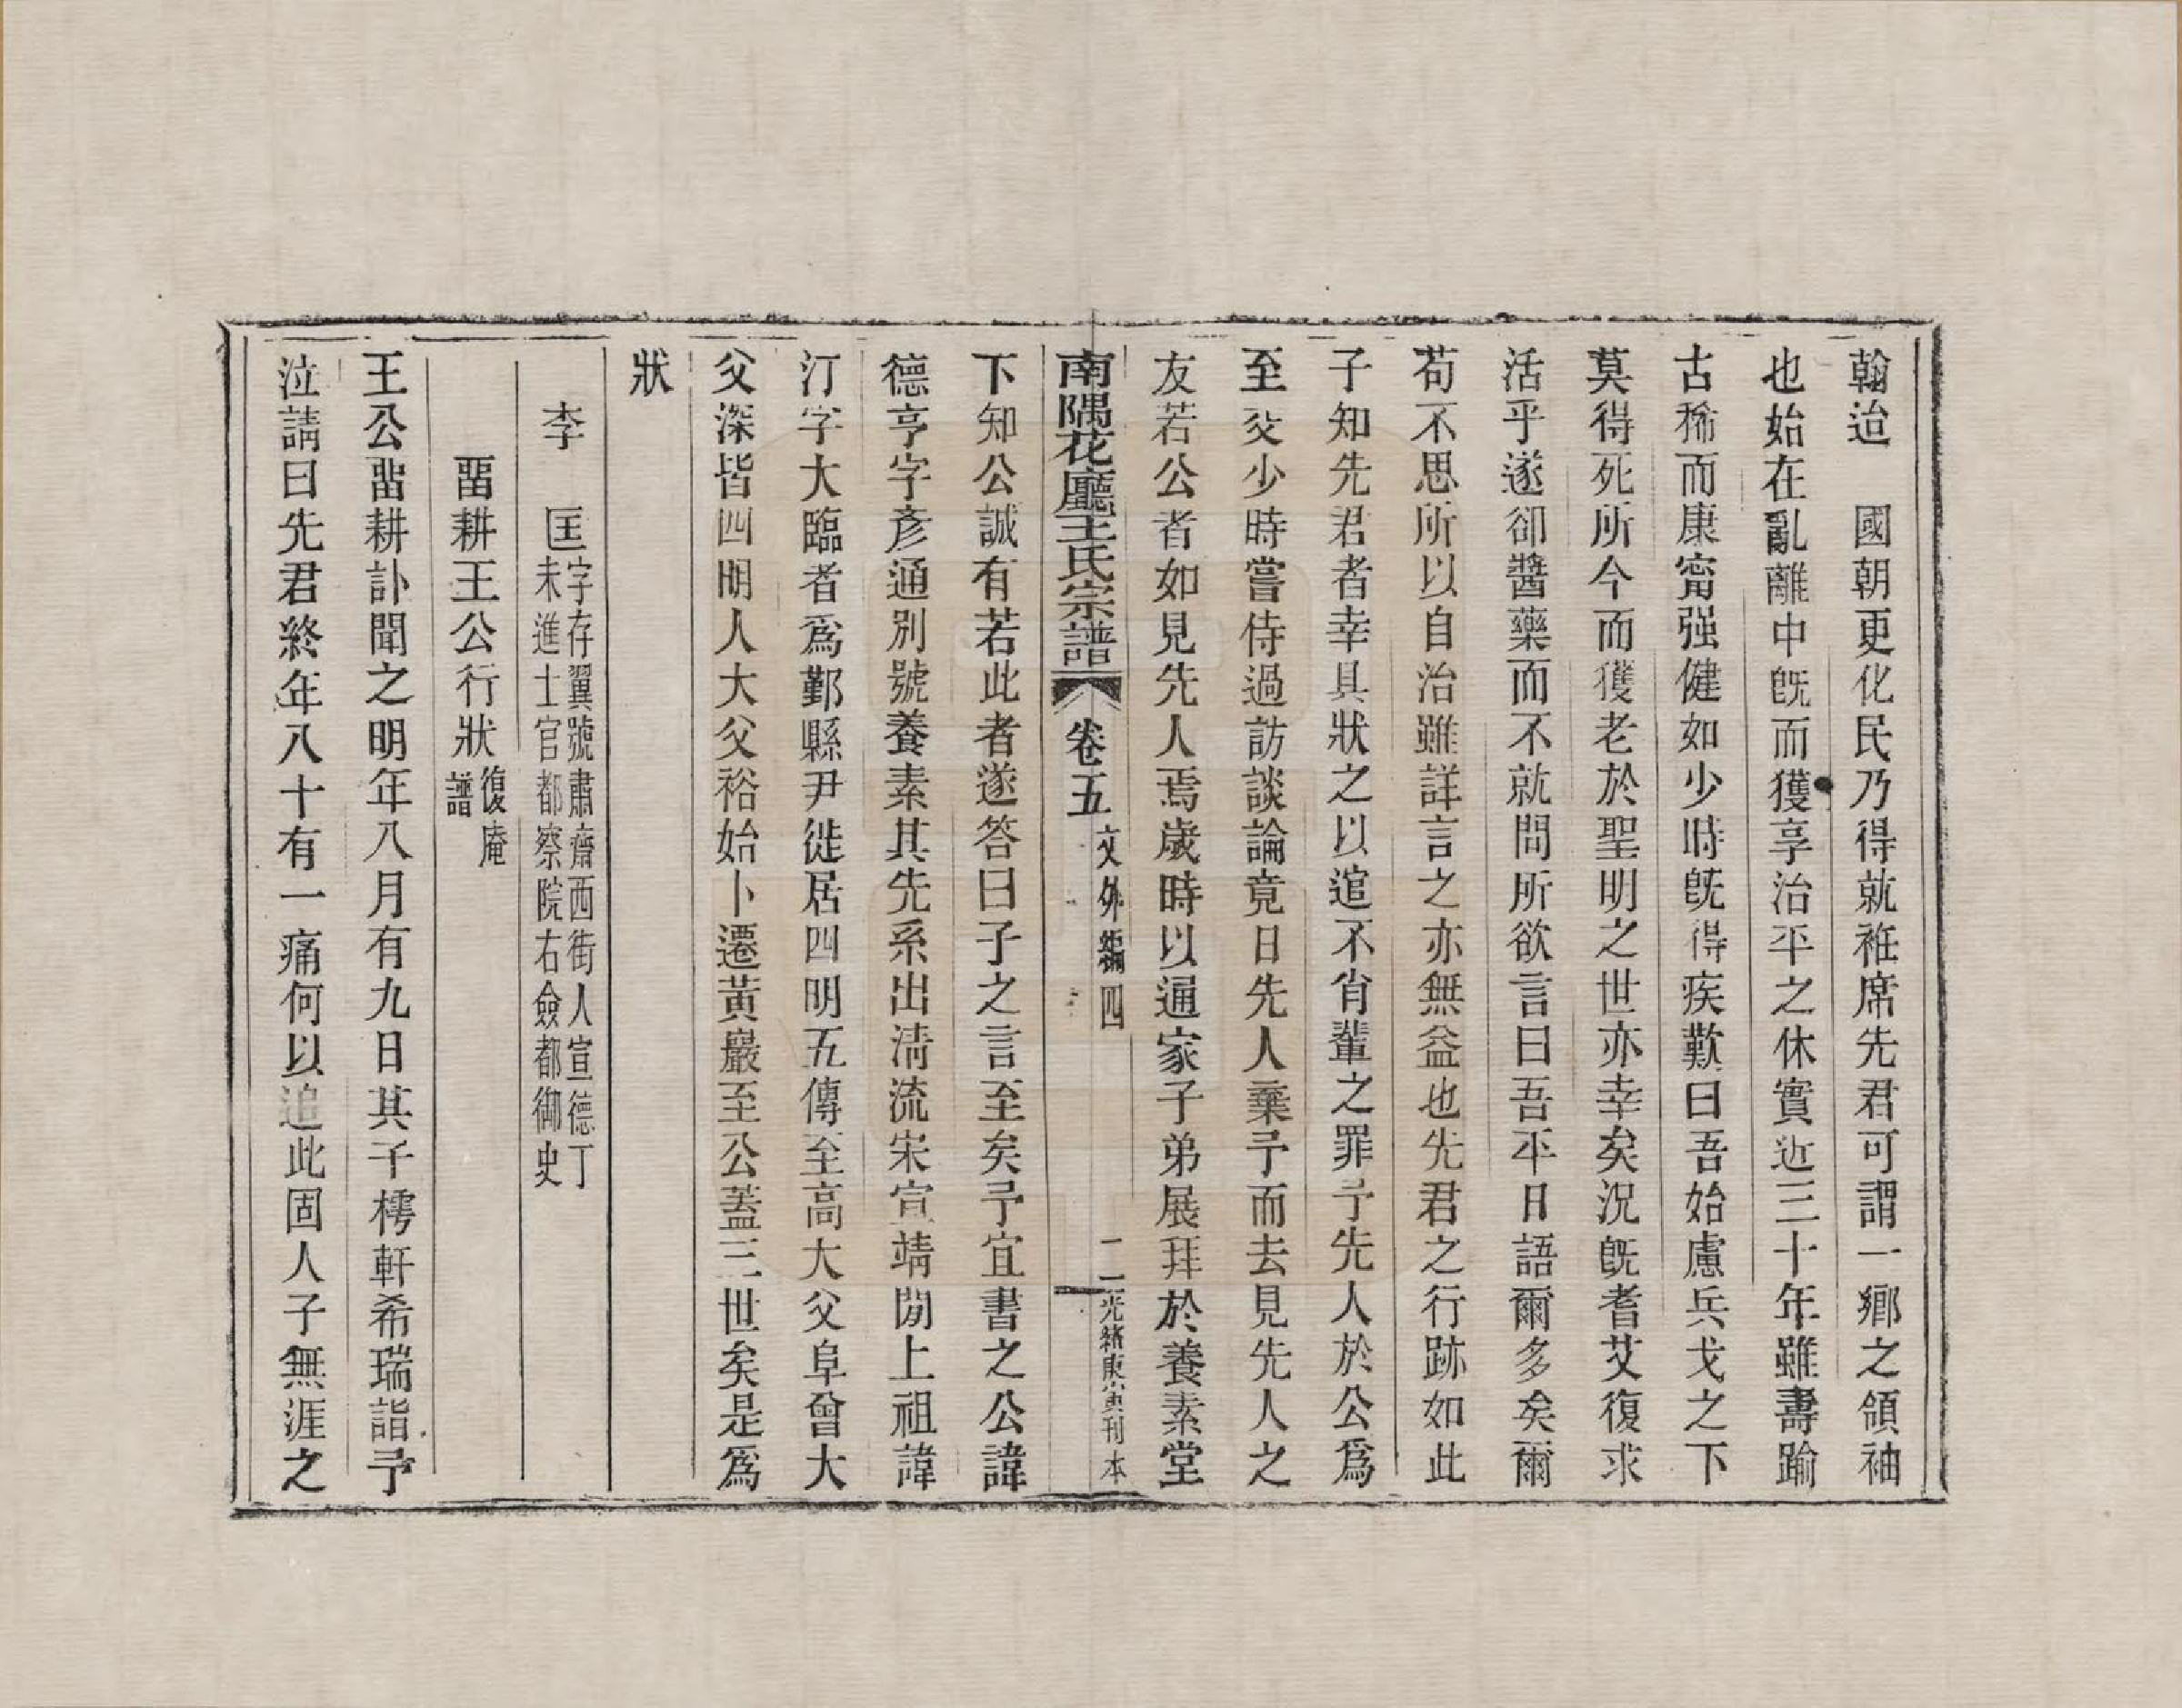 翰迨　國朝更化民乃得就袵席先君可謂一鄉之領袖
也始在亂離中旣而獲享治平之休實近三十年雖壽踰
古稀而康甯强健如少時旣得疾歎曰吾始慮兵戈之下
莫得死所今而獲老於聖明之世亦幸矣況旣耆艾復求
活乎遂卻醫藥而不就問所欲言曰吾平日語爾多矣爾
苟不思所以自治雖詳言之亦無益也先君之行跡如此
子知先君者幸具狀之以逭不肖輩之罪予先人於公爲
至交少時嘗侍過訪談論竟日先人棄予而去見先人之
友若公者如見先人焉歲時以通家子弟展拜於養素堂
南隅花廳王氏宗譜　卷五　文外編四　二　光緒庚寅刊本
下知公誠有若此者遂答曰子之言至矣予宜書之公諱
德亨字彥通別號養素其先系出淸流宋宣靖閒上祖諱
汀字大臨者爲鄞縣尹徙居四明五傳至高大父阜曾大
父深皆四明人大父裕始卜遷黃巖至公蓋三世矣是爲
狀
李　匡字存翼號肅齋西街人宣德丁
未進士官都察院右僉都御史
畱耕王公行狀復庵
譜
王公畱耕訃聞之明年八月有九日其子樗軒希瑞詣予
泣請曰先君終年八十有一痛何以追此固人子無涯之